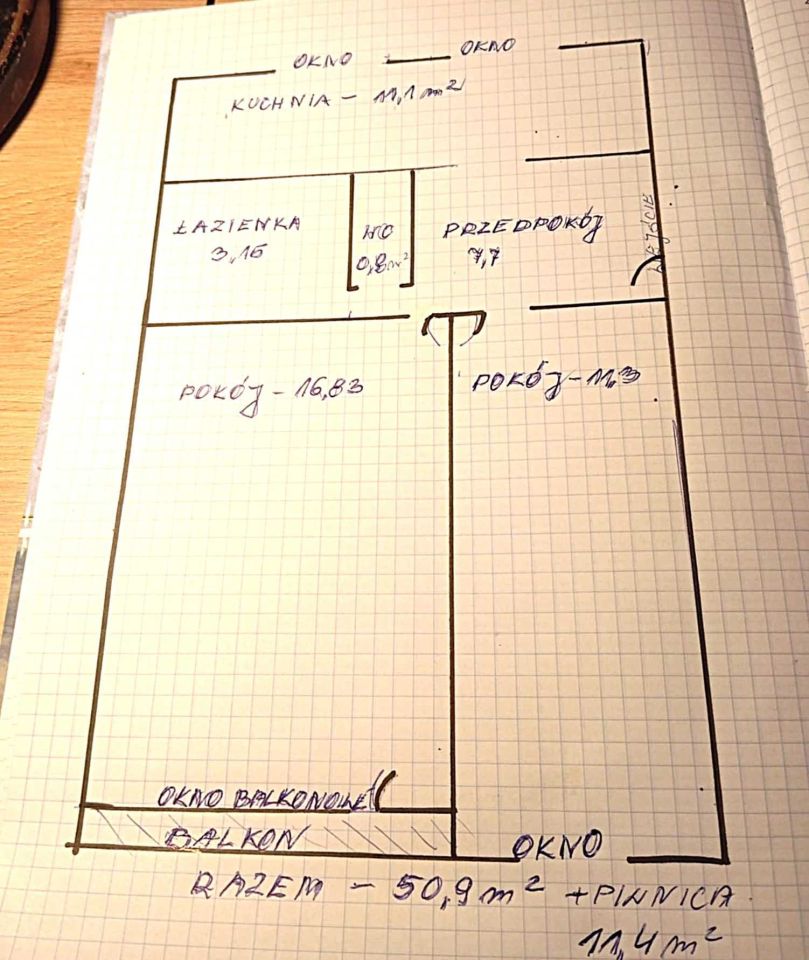 OKNO
OKNO
KUCHNIA - 11,1 m²
ŁAZIENKA
3,16
WC
0,8m²
PRZEDPOKÓJ
7,7
WEJŚCIE
POKÓJ - 16,83
POKÓJ - 11,3
OKNO BALKONOWE
BALKON
OKNO
RAZEM - 50,9 m² + PIWNICA
11,4 m²